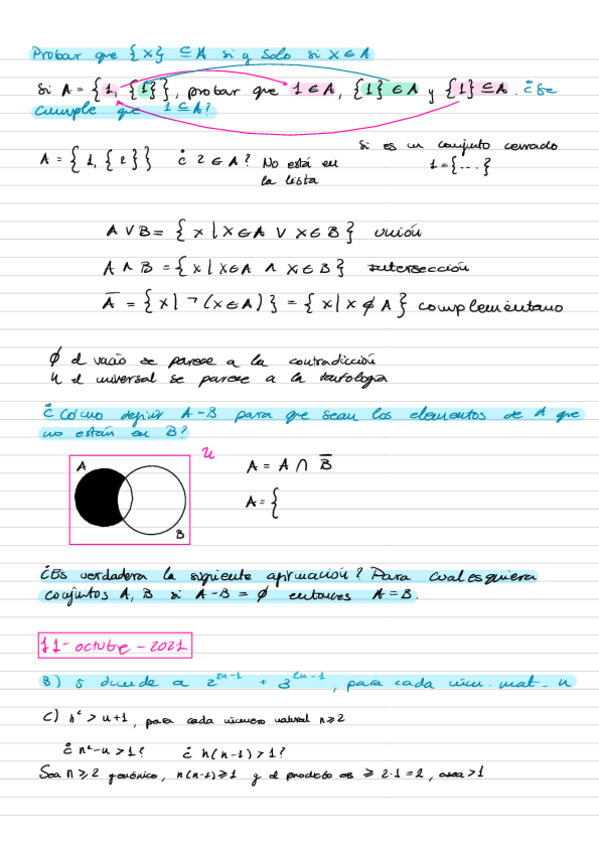 Probar que {x} ⊆ A si y solo si x ∈ A
Si A = {1, {1}}, probar que 1 ∈ A, {1} ∈ A y {1} ⊆ A. ¿Se
cumple que 1 ⊆ A?
Si es un conjunto cerrado
A = {1, {2}} ¿ 2 ∈ A? No está en
1 = {...}
la lista
A ∨ B = {x | x ∈ A ∨ x ∈ B} unión
A ∧ B = {x | x ∈ A ∧ x ∈ B} intersección
A̅ = {x | ¬(x ∈ A)} = {x | x ∉ A} complementario
∅ el vacío se parece a la contradicción
U el universal se parece a la tautología
¿Cómo definir A-B para que sean los elementos de A que
no están en B?
A
U
B
A = A ∩ B̅
A = {
¿Es verdadera la siguiente afirmación? Para cualesquiera
conjuntos A, B si A-B = ∅ entonces A = B.
11- octubre - 2021
B) 5 divide a 2²ⁿ⁻¹ + 3²ⁿ⁻¹, para cada núm. nat. n
C) n² > n+1, para cada número natural n ≥ 2
¿ n²-n > 1? ¿ n(n-1) > 1?
Sea n ≥ 2 genérico, n(n-1) ≥ 1 y el producto es ≥ 2·1 = 2, osea > 1